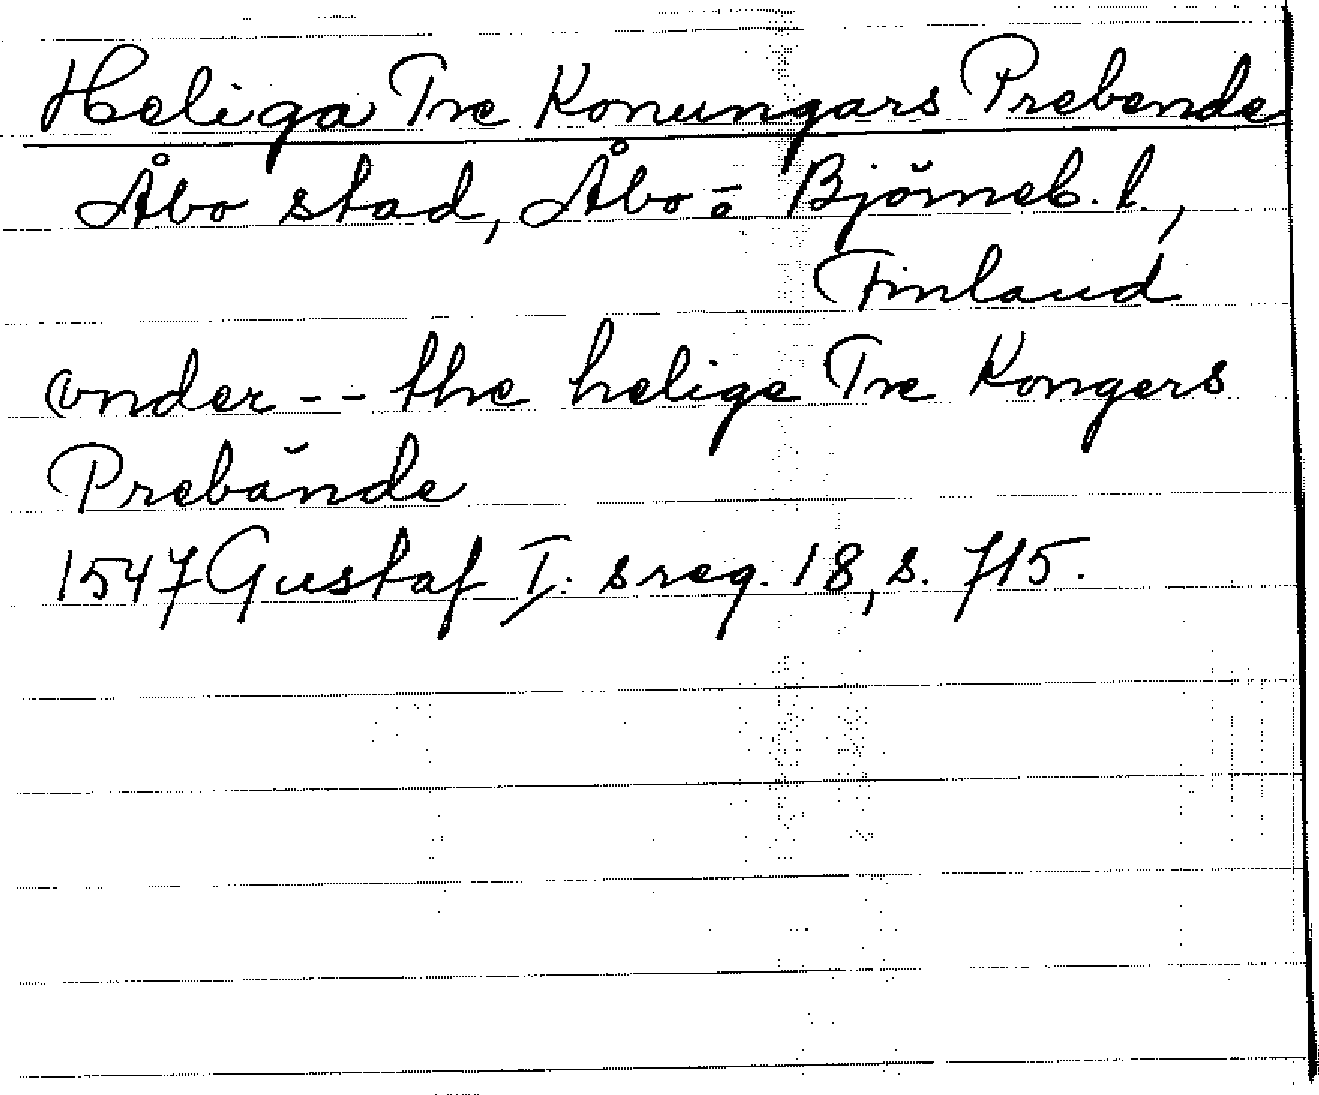 Heliga Tre Konungars Prebende
Åbo stad, Åbo- o Björneb. l.,
Finland
under -- the helige Tre Kongers
Prebände
1547 Gustaf I: s reg. 18, s. 715.